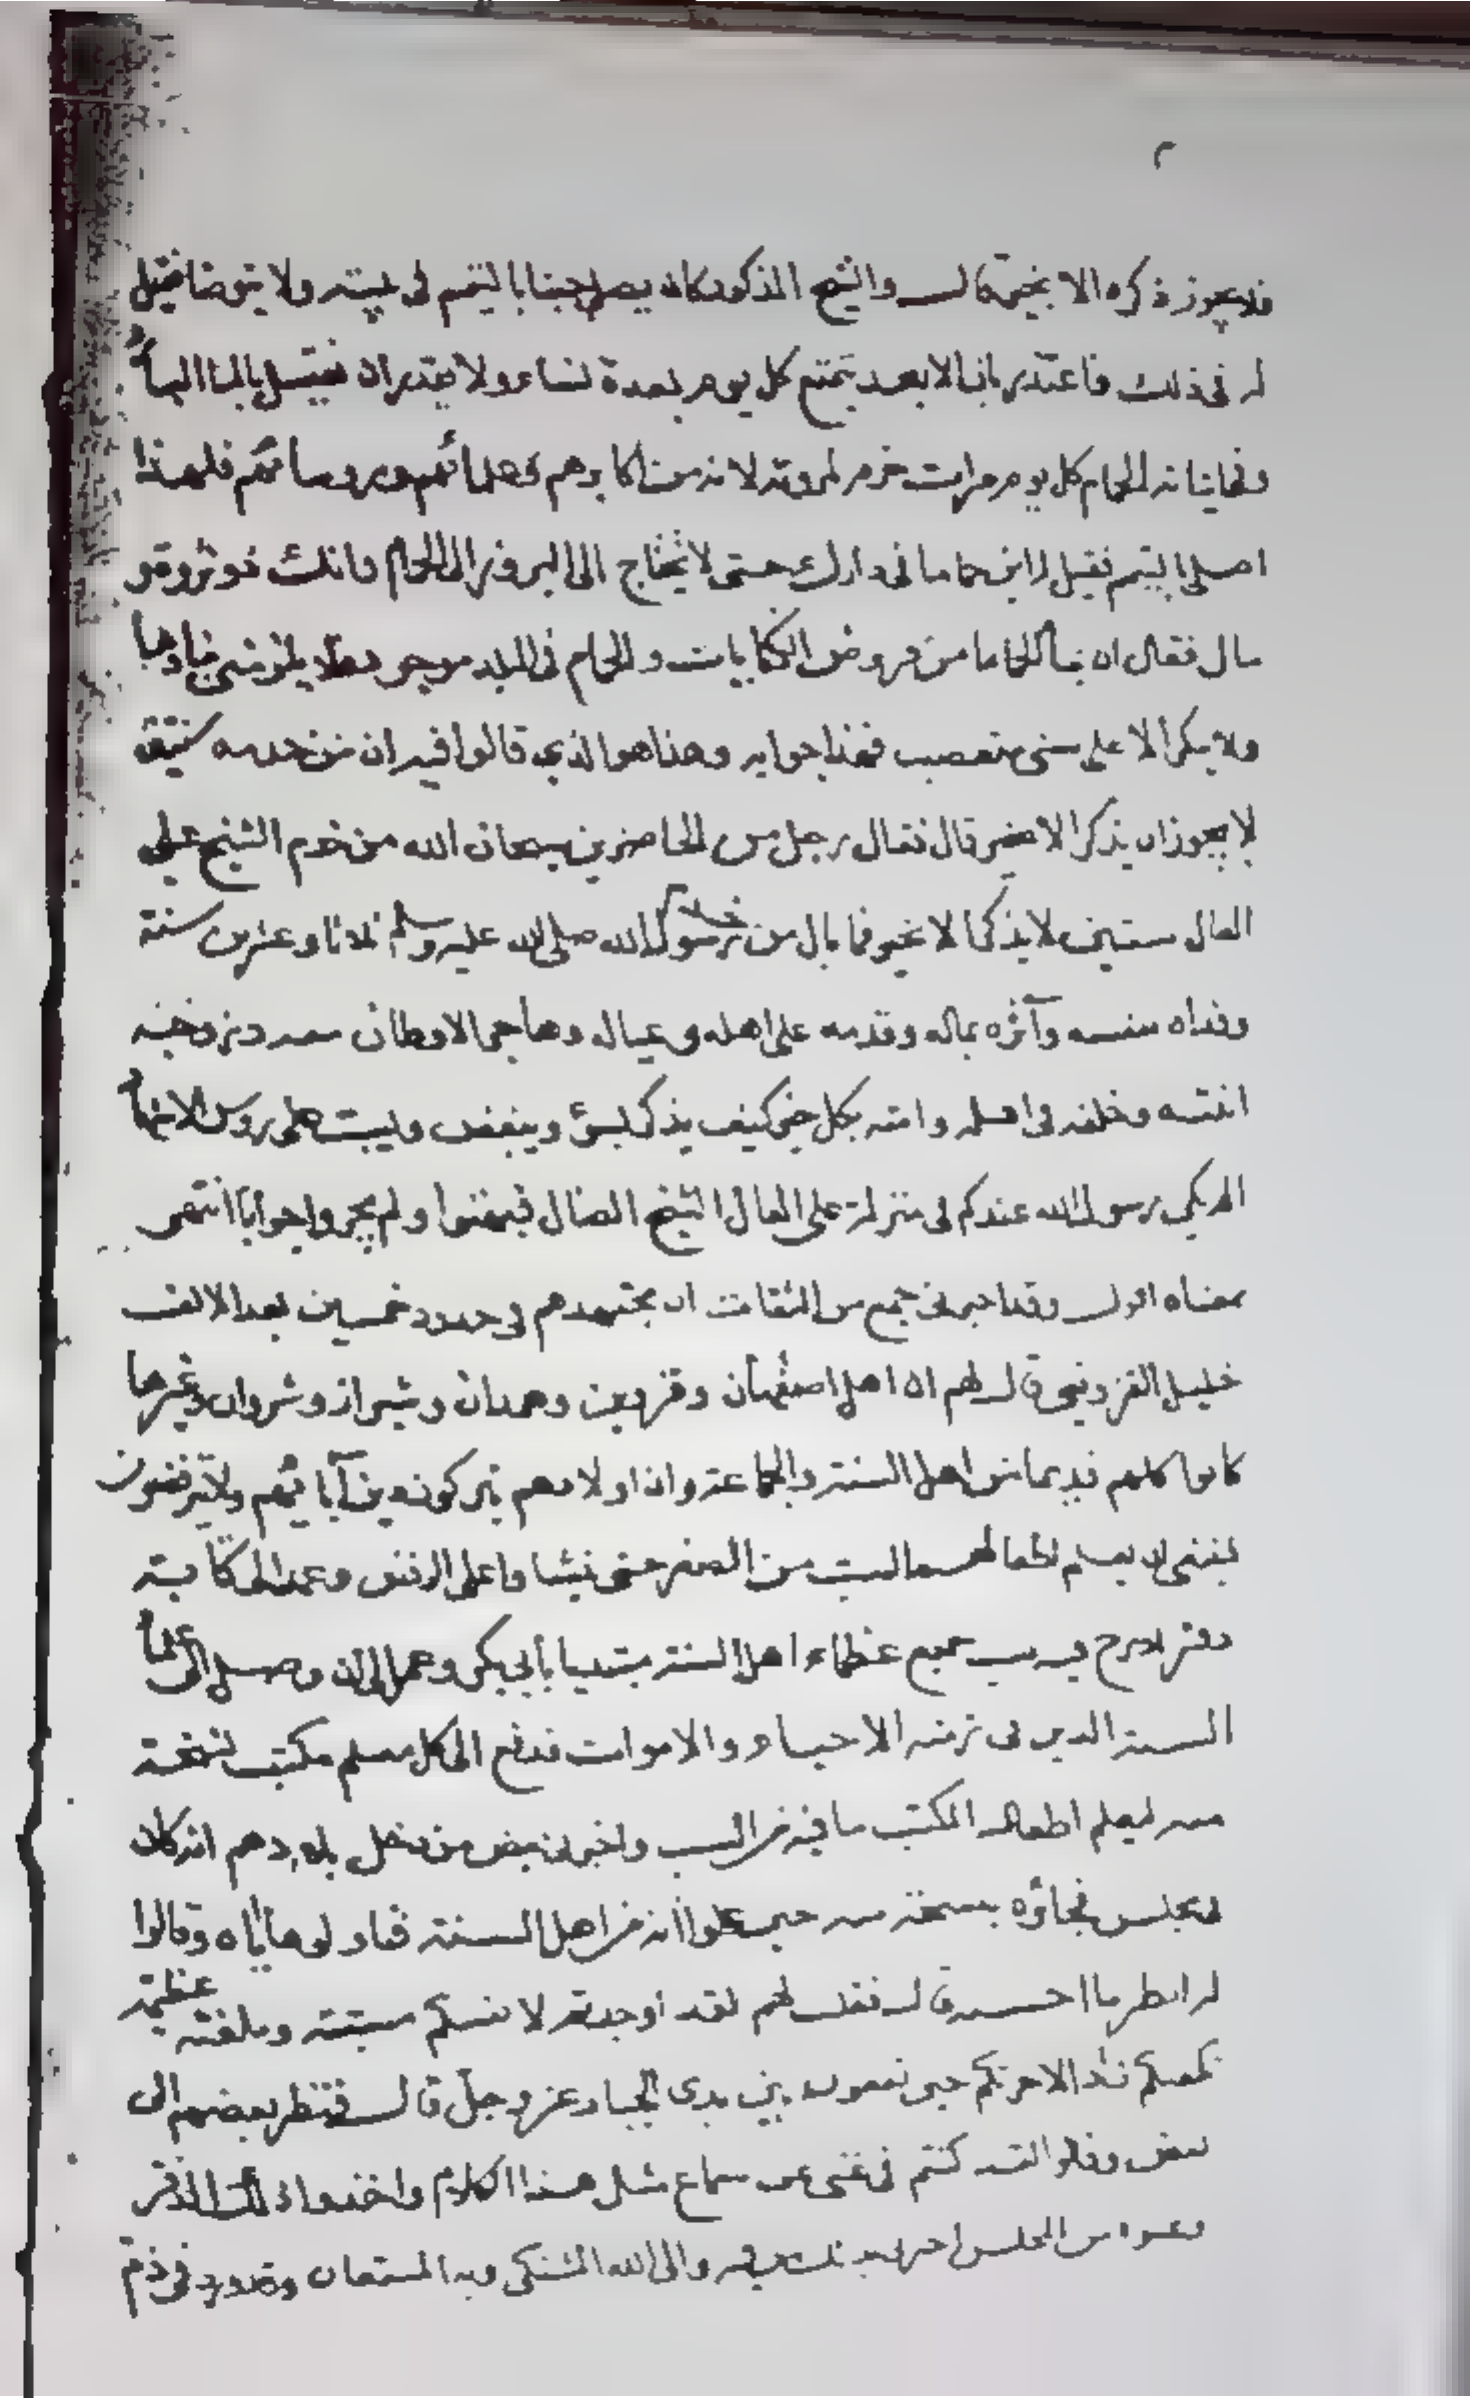 ٢
فلا يجوز ذكره الا بخير قال والشيخ المذكور كان يصلي جنبا بالتيمم في بيته ولا يتوضا فقيل
له في ذلك فاعتذر بانه لابد يتمتع كل يوم بعدة نساء ولا يقدر ان يغتسل بالماء البارد
وفي اتيانه الحمام كل يوم مرات خرم لمروته لانه من اكابرهم وعلمائهم وروسائهم فلهذا
اصلي بالتيمم فقيل له ابن حماما في دارك حتى لا تحتاج الى البروز الى الحمام فانك ذو ثروة و
مال فقال ان بناء الحمام من فروض الكفايات والحمام في البلد موجود فلا يلزمني
ولا ينكر الا على سني متعصب فهذا جوابه وهذا هو الذي قالوا فيه ان من خدمه سنتين
لا يجوز ان يذكر الا بخير قال فقال رجل من الحاضرين سبحان الله من خدم الشيخ علي
العال سنتين لا يذكر الا بخير فما بال من خدم رسول الله صلى الله عليه وسلم ثلاثا وعشرين سنة
وفداه بنفسه وآثره بماله وقدمه على اهله وعياله وهاجر الاوطان معه وزوجه
ابنته وخلفه في اهله وامته بكل خير كيف يذكر بسوء ويبغض ويسب على روس الاشهاد
الم يكن رسول الله عندكم في منزلة علي العال الشيخ الضال فبهتوا ولم يحيروا جوابا انتهى
بمعناه اقول وقد اخبرني جمع من الثقات ان مجتهدهم في حدود خمسين بعد الالف
خليل القزويني قال لهم ان اهل اصفهان وقزوين وهمدان وشيراز وشروان وغيرها
كانوا كلهم قديما من اهل السنة والجماعة وان اولادهم يتركون دين آبائهم ولا يرفضون
فينبغي ان يعلم اطفالهم السب من الصغر حتى ينشاوا على الرفض وعمد الى كتابة
دفتر ادرج فيه سب جميع عظماء اهل السنة مبتديا بأبي بكر وعمر الى ان وصل الى علماء
السنة الذين في زمنه الاحياء والاموات فدفع الى كل معلم مكتب نسخة
منه ليعلم اطفال المكتب ما فيه من السب واخبرني بعض من دخل بلادهم انه كان
في مجلس فجاؤه بنسخة منه حين علموا انه من اهل السنة فناولوها اياه وقالوا
له انظر ما احسنه قال فقلت لهم لقد اوجدتم لانفسكم مسبة وبلغتم عظيمة
تكفيكم زاد الاخرتكم حين تقفون بين يدي الجبار عز وجل قال فنظر بعضهم الى
بعض وقالوا لقد كنتم في غنى عن سماع مثل هذا الكلام واخذوا ذلك الدفتر
والى الله المشتكى وبه المستعان في ذم